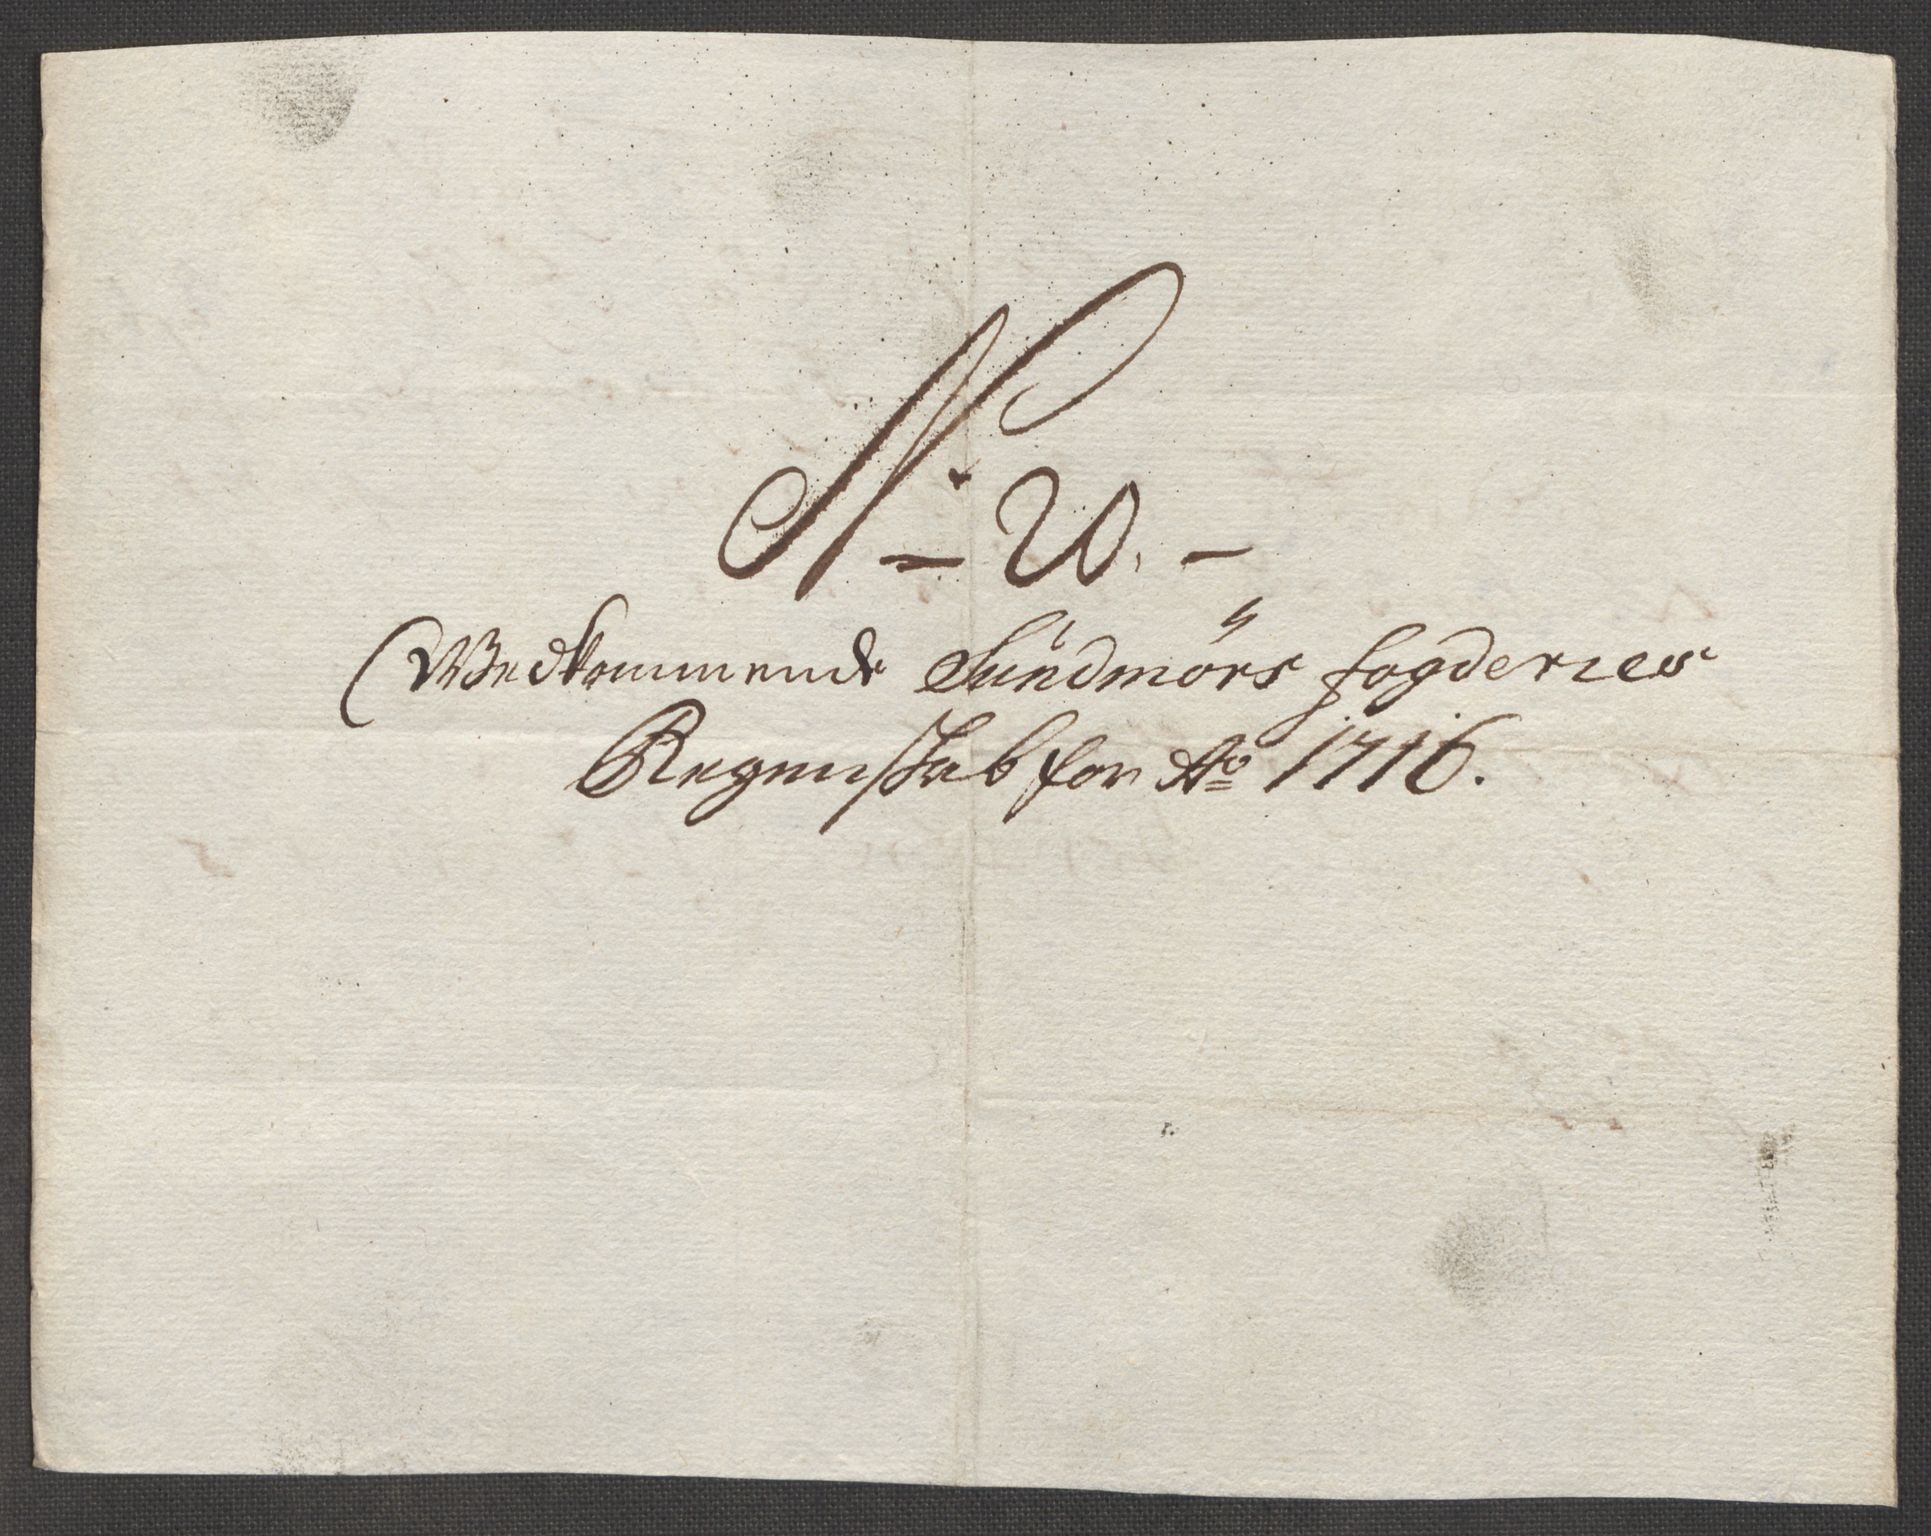 N. W. -
Wedkommende Sundmörs fogderies
Regenskab for Ao 1716.